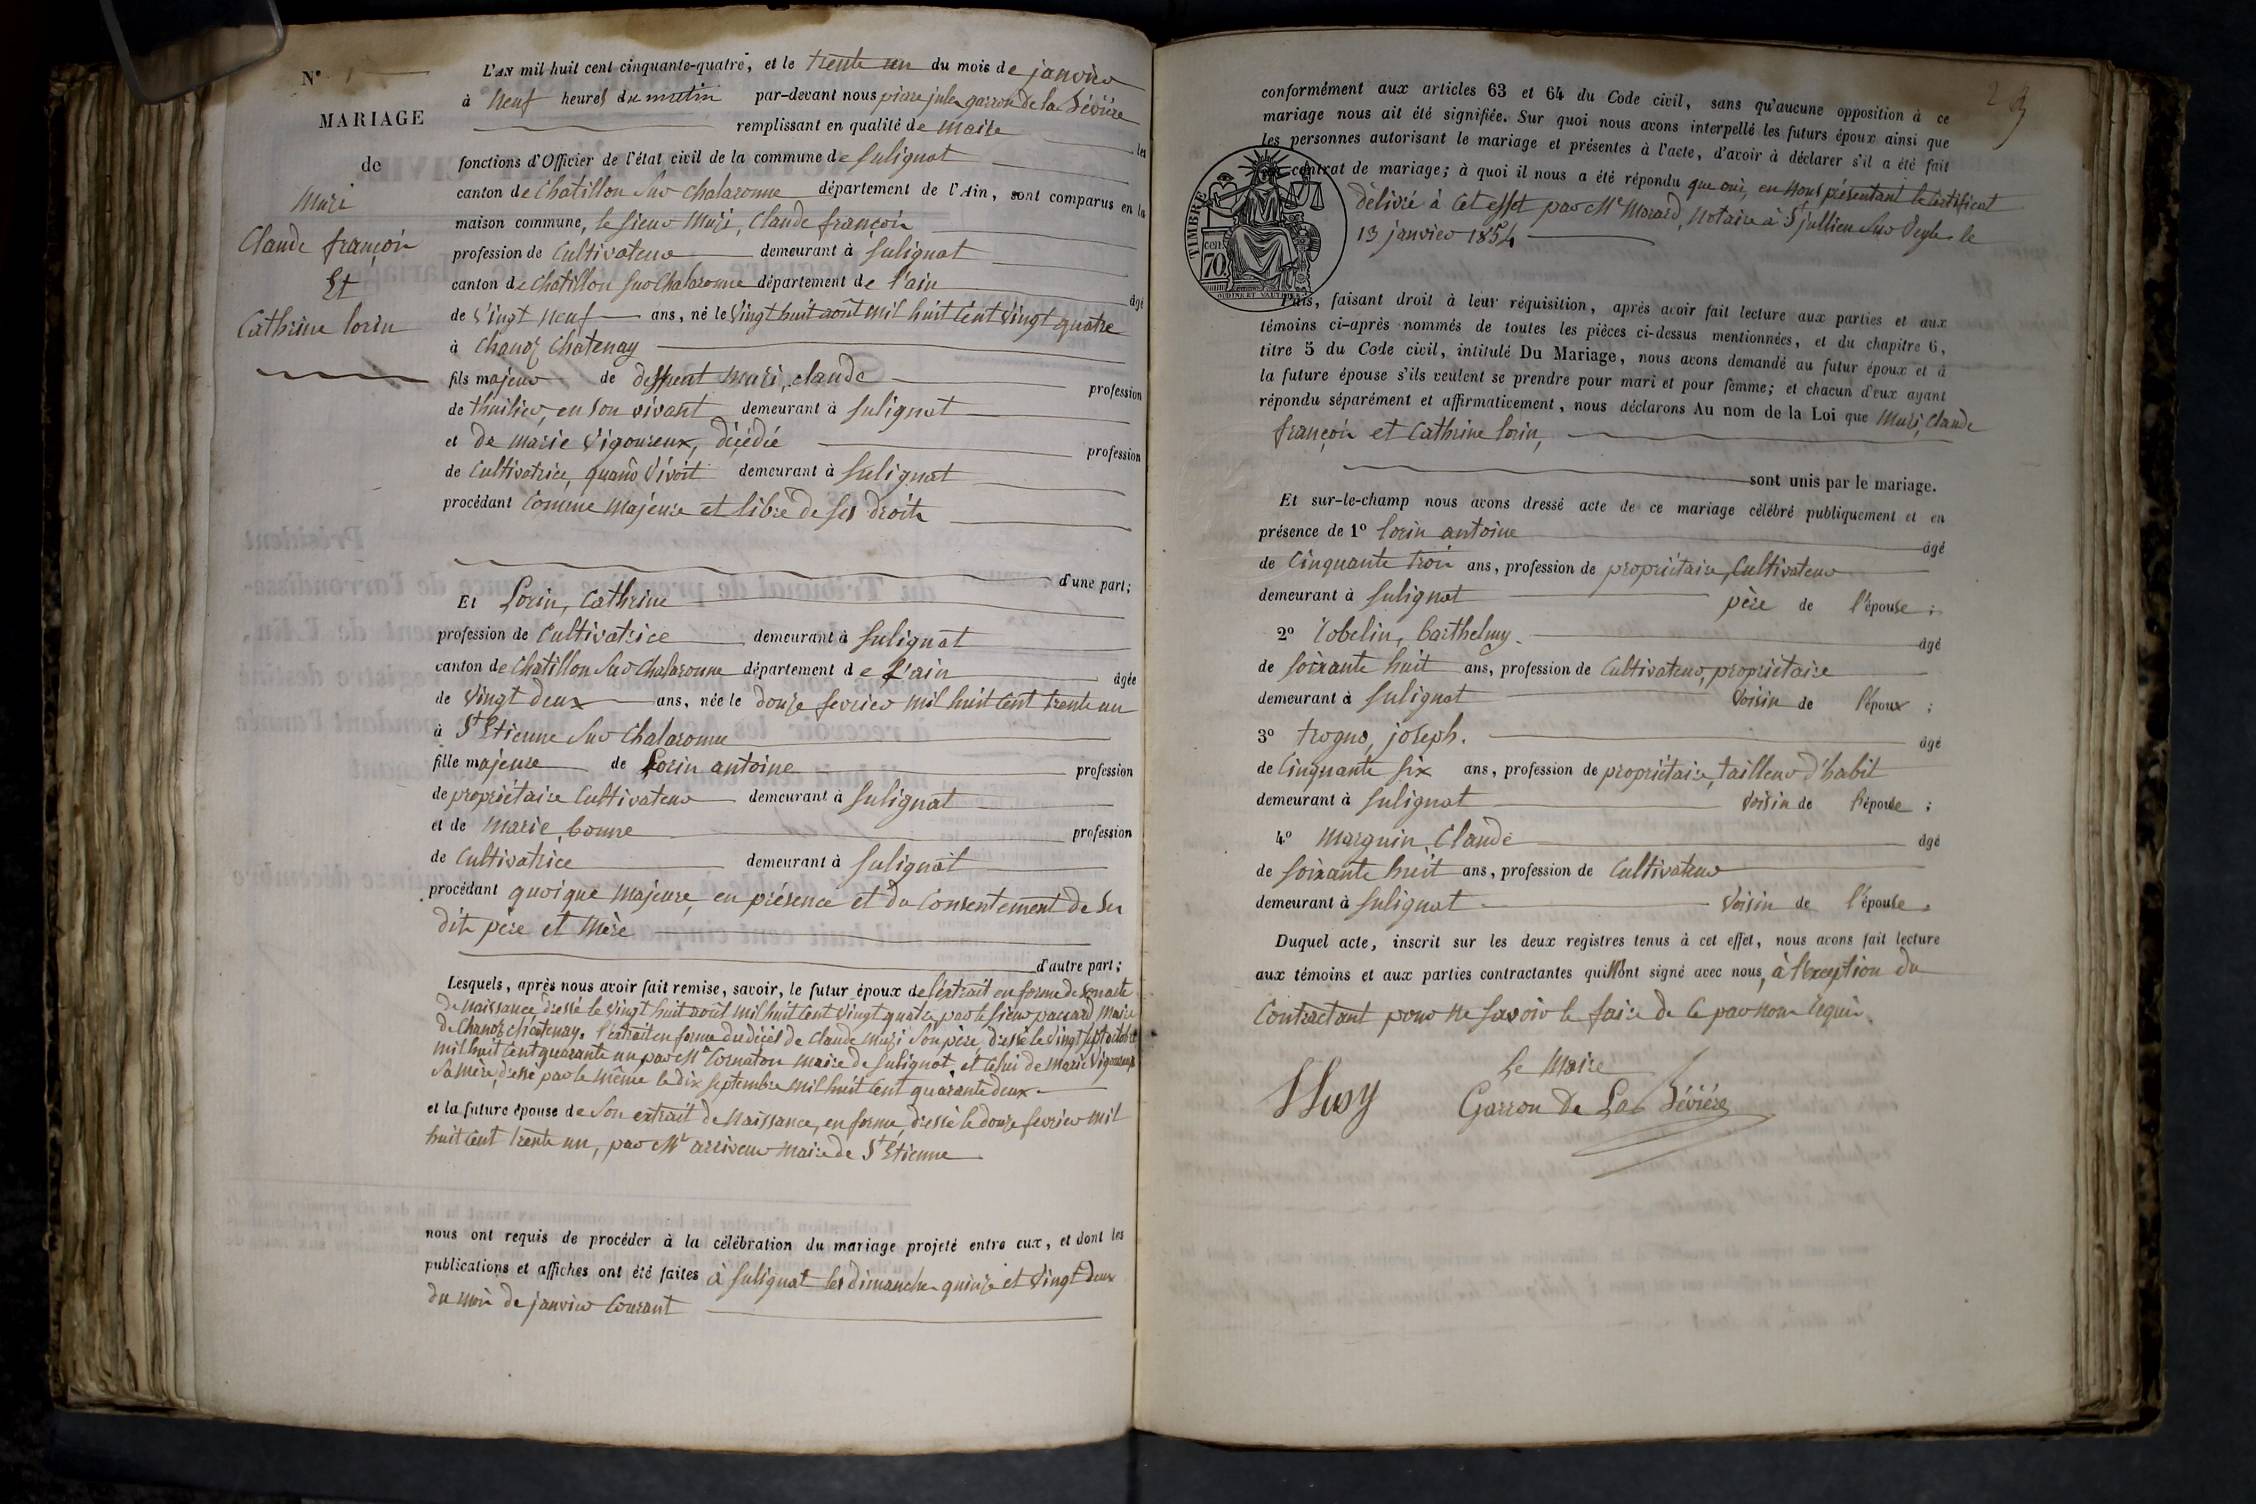 N° 1
MARIAGE
de
Muzi
Claude françois
Et
Cathrine lorin
L'AN mil huit cent cinquante-quatre, et le trente un du mois de janvier
à neuf heures du matin par-devant nous pierre jules garron de la Bévière
remplissant en qualité de maire les
fonctions d'Officier de l'état civil de la commune de Sulignat
canton de Chatillon Sur Chalaronne département de l'Ain, sont comparus en la
maison commune, le sieur Muzi, Claude françois
profession de Cultivateur demeurant à Sulignat
canton de Chatillon Sur Chalaronne département de l'ain âgé
de Vingt neuf ans, né le Vingt huit août mil huit Cent Vingt quatre
à Chanoz Chatenay
fils majeur de deffunt Muzi, Claude profession
de thuilier, en Son vivant demeurant à Sulignat
et de marie Vigoureux, décédée profession
de Cultivatrice, quand Vivoit demeurant à Sulignat
procédant Comme Majeure et libre de Ses droits
d'une part;
Et Lorin, Cathrine
profession de Cultivatrice demeurant à Sulignat
canton de Chatillon Sur Chalaronne département de l'ain âgée
de Vingt deux ans, née le douze fevrier mil huit Cent trente un
à St Etienne Sur Chalaronne
fille majeure de Lorin antoine profession
de propriétaire Cultivateur demeurant à Sulignat
et de Marie, bonne profession
de Cultivatrice demeurant à Sulignat
procédant quoique Majeure, en présence et du Consentement de Ses
dits père et Mère
d'autre part;
Lesquels, après nous avoir fait remise, savoir, le futur époux de l'extrait en forme de Son acte
de Naissance dressé le Vingt huit août Mil huit Cent Vingt quatre par le Sieur paccard Maire
de Chanoz Chatenay. l'extrait en forme du décès de Claude Muzi Son père, dressé le Vingt Sept octobre
Mil huit Cent quarante un par Mr Cornaton Maire de Sulignat, et Celui de Marie Vigoureux
Sa Mère, dressé par le même le dix Septembre Mil huit Cent quarante deux.
et la future épouse de Son extrait de Naissance, en forme, dressé le douze fevrier Mil
huit Cent trente un, par Mr arriveur Maire de St Etienne
nous ont requis de procéder à la célébration du mariage projeté entre eux, et dont les
publications et affiches ont été faites à Sulignat les dimanches quinze et Vingt deux
du mois de janvier Courant
conformément aux articles 63 et 64 du Code civil, sans qu'aucune opposition à ce
mariage nous ait été signifiée. Sur quoi nous avons interpellé les futurs époux ainsi que
les personnes autorisant le mariage et présentes à l'acte, d'avoir à déclarer s'il a été fait
contrat de mariage; à quoi il nous a été répondu que oui, en nous présentant le Certificat
délivré à Cet effet par Me Morard, Notaire à St jullien Sur Veyle le
13 janvier 1854
TIMBRE
cen.
70
OUDINE ET VAUTHIER
Puis, faisant droit à leur réquisition, après avoir fait lecture aux parties et aux
témoins ci-après nommés de toutes les pièces ci-dessus mentionnées, et du chapitre 6,
titre 5 du Code civil, intitulé Du Mariage, nous avons demandé au futur époux et à
la future épouse s'ils veulent se prendre pour mari et pour femme; et chacun d'eux ayant
répondu séparément et affirmativement, nous déclarons Au nom de la Loi que Muzi, Claude
françois et Cathrine lorin,
sont unis par le mariage.
Et sur-le-champ nous avons dressé acte de ce mariage célébré publiquement et en
présence de 1° lorin antoine âgé
de Cinquante trois ans, profession de propriétaire, Cultivateur
demeurant à Sulignat père de l'épouse;
2° Robelin, barthelmy. âgé
de Soixante huit ans, profession de Cultivateur, propriétaire
demeurant à Sulignat Voisin de l'époux;
3° trogno, joseph. âgé
de Cinquante Six ans, profession de propriétaire, tailleur d'habit
demeurant à Sulignat Voisin de l'épouse;
4° Marguin, Claude âgé
de Soixante huit ans, profession de Cultivateur
demeurant à Sulignat Voisin de l'épouse.
Duquel acte, inscrit sur les deux registres tenus à cet effet, nous avons fait lecture
aux témoins et aux parties contractantes qui l'ont signé avec nous, à l'exception du
Contractant pour ne Savoir le faire de Ce par nous requis.
Le Maire
Garron De La Bévière